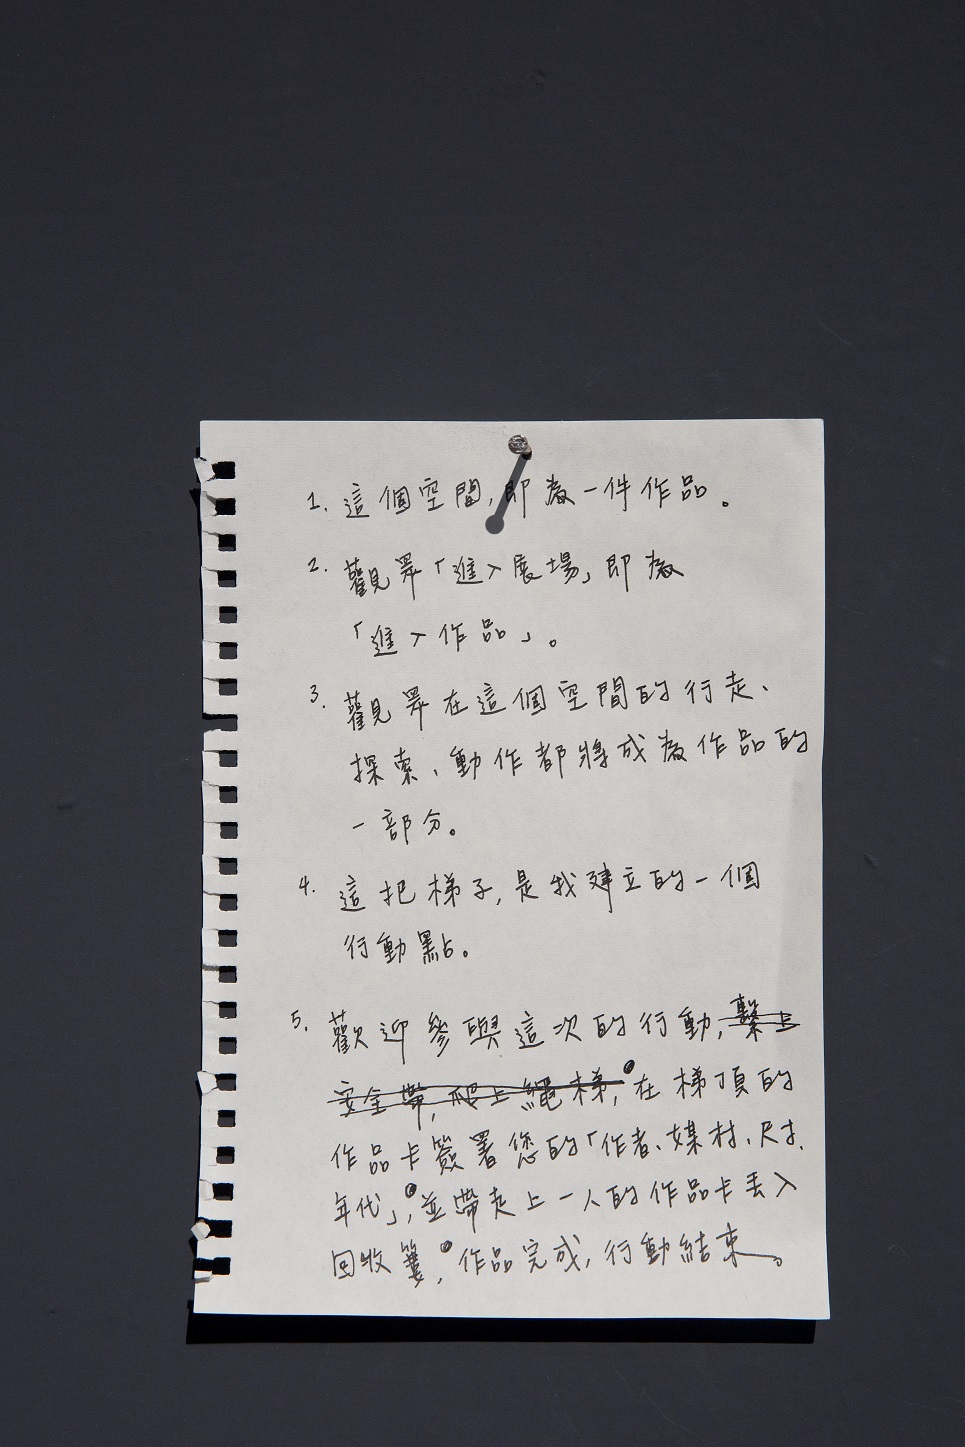 1. 這個空間,即為一件作品。
2. 觀眾「進入展場」即為
「進入作品」。
3. 觀眾在這個空間的行走、
探索、動作都將成為作品的
一部分。
4. 這把梯子,是我建立的一個
行動點。
5. 歡迎參與這次的行動,繫上
安全帶,爬上繩梯,在梯頂的
作品卡簽署您的「作者、媒材、尺寸、
年代」,並帶走上一人的作品卡丟入
回收簍,作品完成,行動結束。